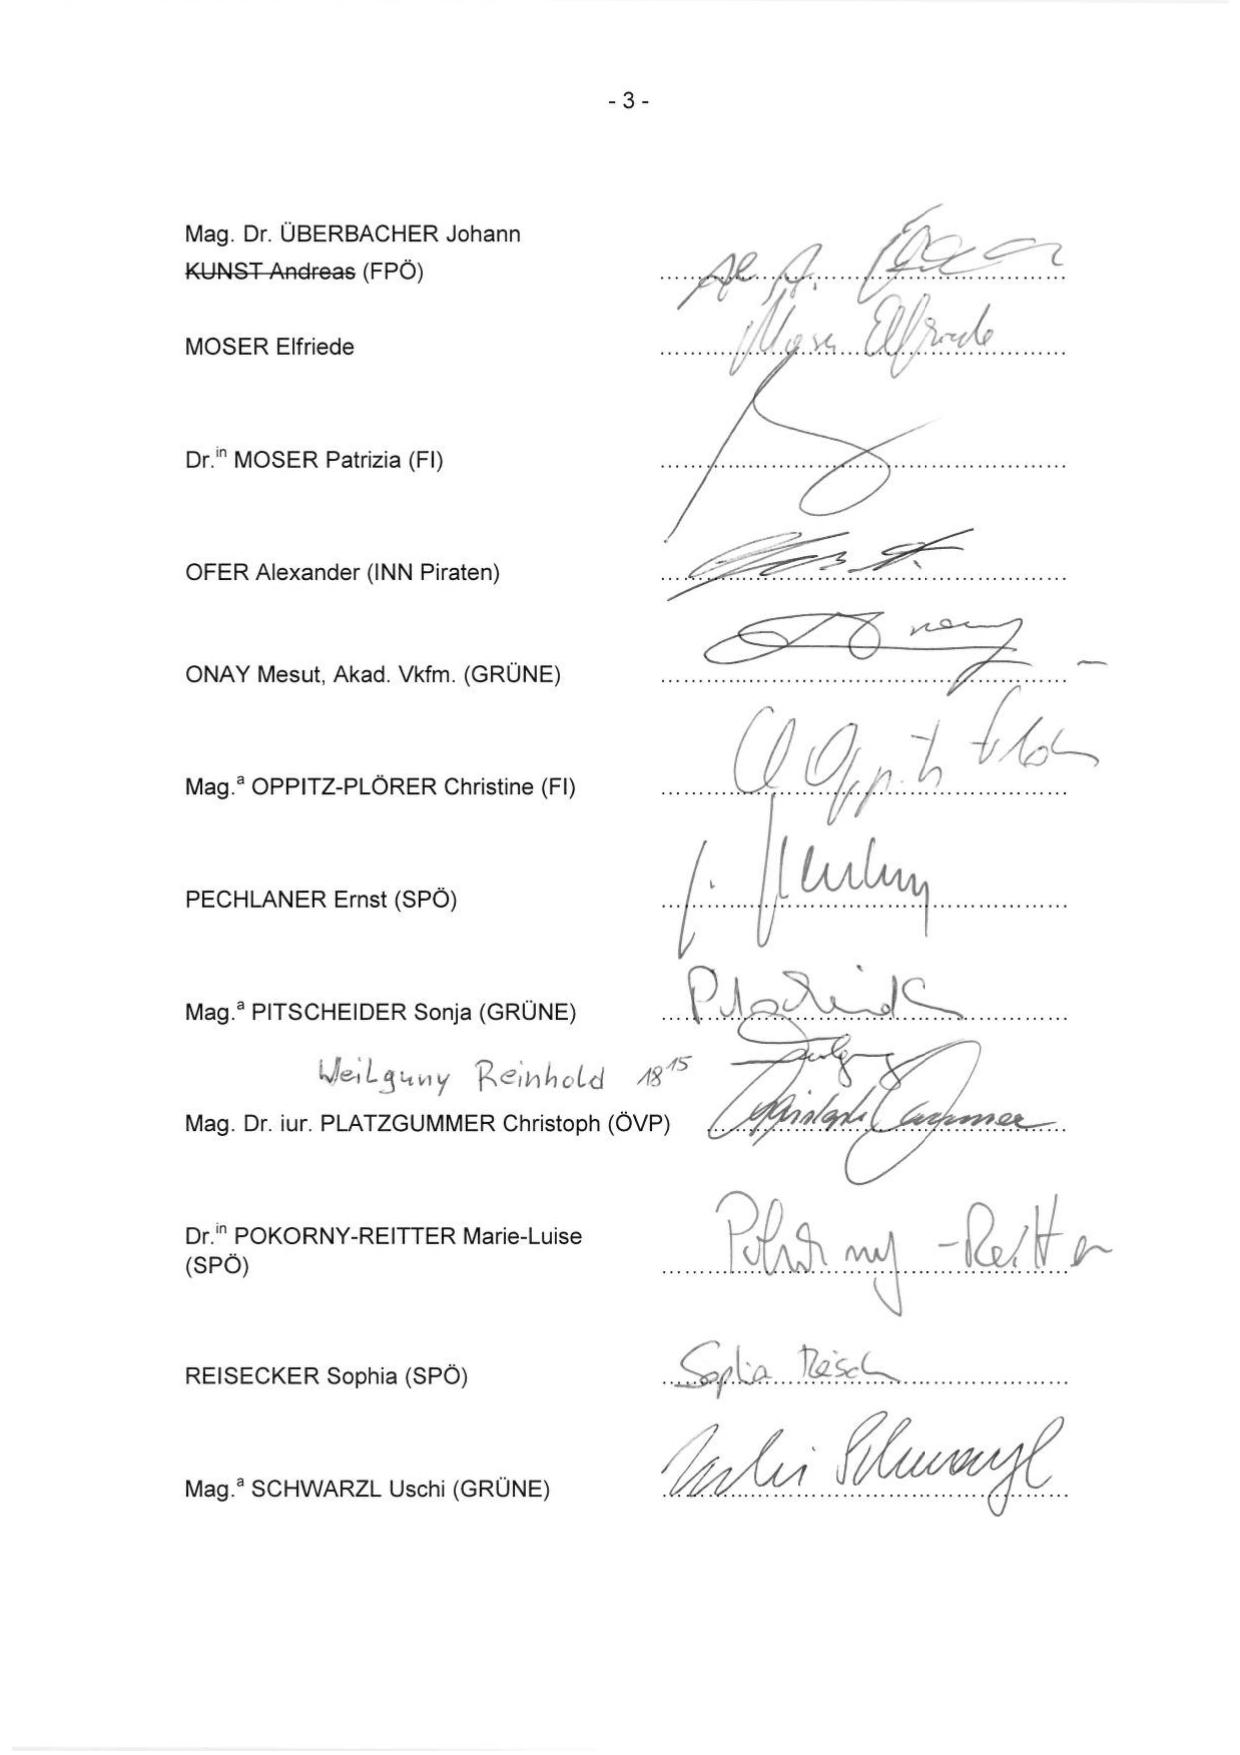 - 3 -
Mag. Dr. ÜBERBACHER Johann
KUNST Andreas (FPÖ)
MOSER Elfriede
Moser Elfriede
Dr.in MOSER Patrizia (FI)
OFER Alexander (INN Piraten)
ONAY Mesut, Akad. Vkfm. (GRÜNE)
Mag.a OPPITZ-PLÖRER Christine (FI)
PECHLANER Ernst (SPÖ)
Mag.a PITSCHEIDER Sonja (GRÜNE)
Weilguny Reinhold 18 15
Mag. Dr. iur. PLATZGUMMER Christoph (ÖVP)
Dr.in POKORNY-REITTER Marie-Luise
(SPÖ)
Pokorny-Reitter
REISECKER Sophia (SPÖ)
Sophia
Mag.a SCHWARZL Uschi (GRÜNE)
Uschi Schwarzl